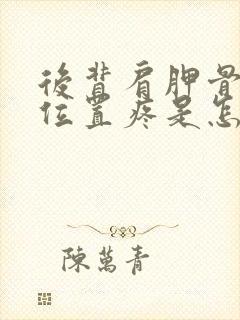 後背肩胛骨
位置疼是怎
陳萬青